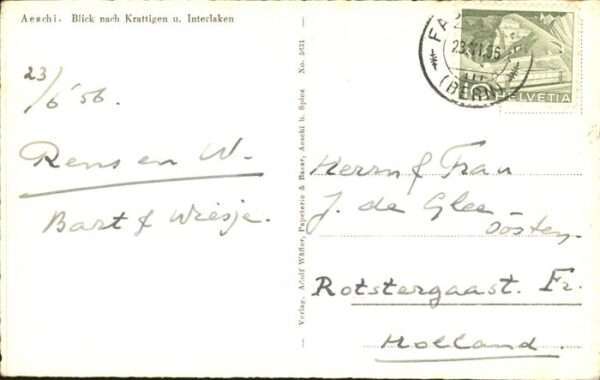 Aeschi. Blick nach Krattigen u. Interlaken
23/6'56.
Rens en W.
Bart & Wiesje.
Verlag. Adolf Wäfler, Papeterie & Bazar, Aeschi b. Spiez No. 5631
23.VI.56
(BERN)
HELVETIA
Herrn & Frau
J. de Glee-
Oosten.
Rotstergaast. Fr.
Holland.